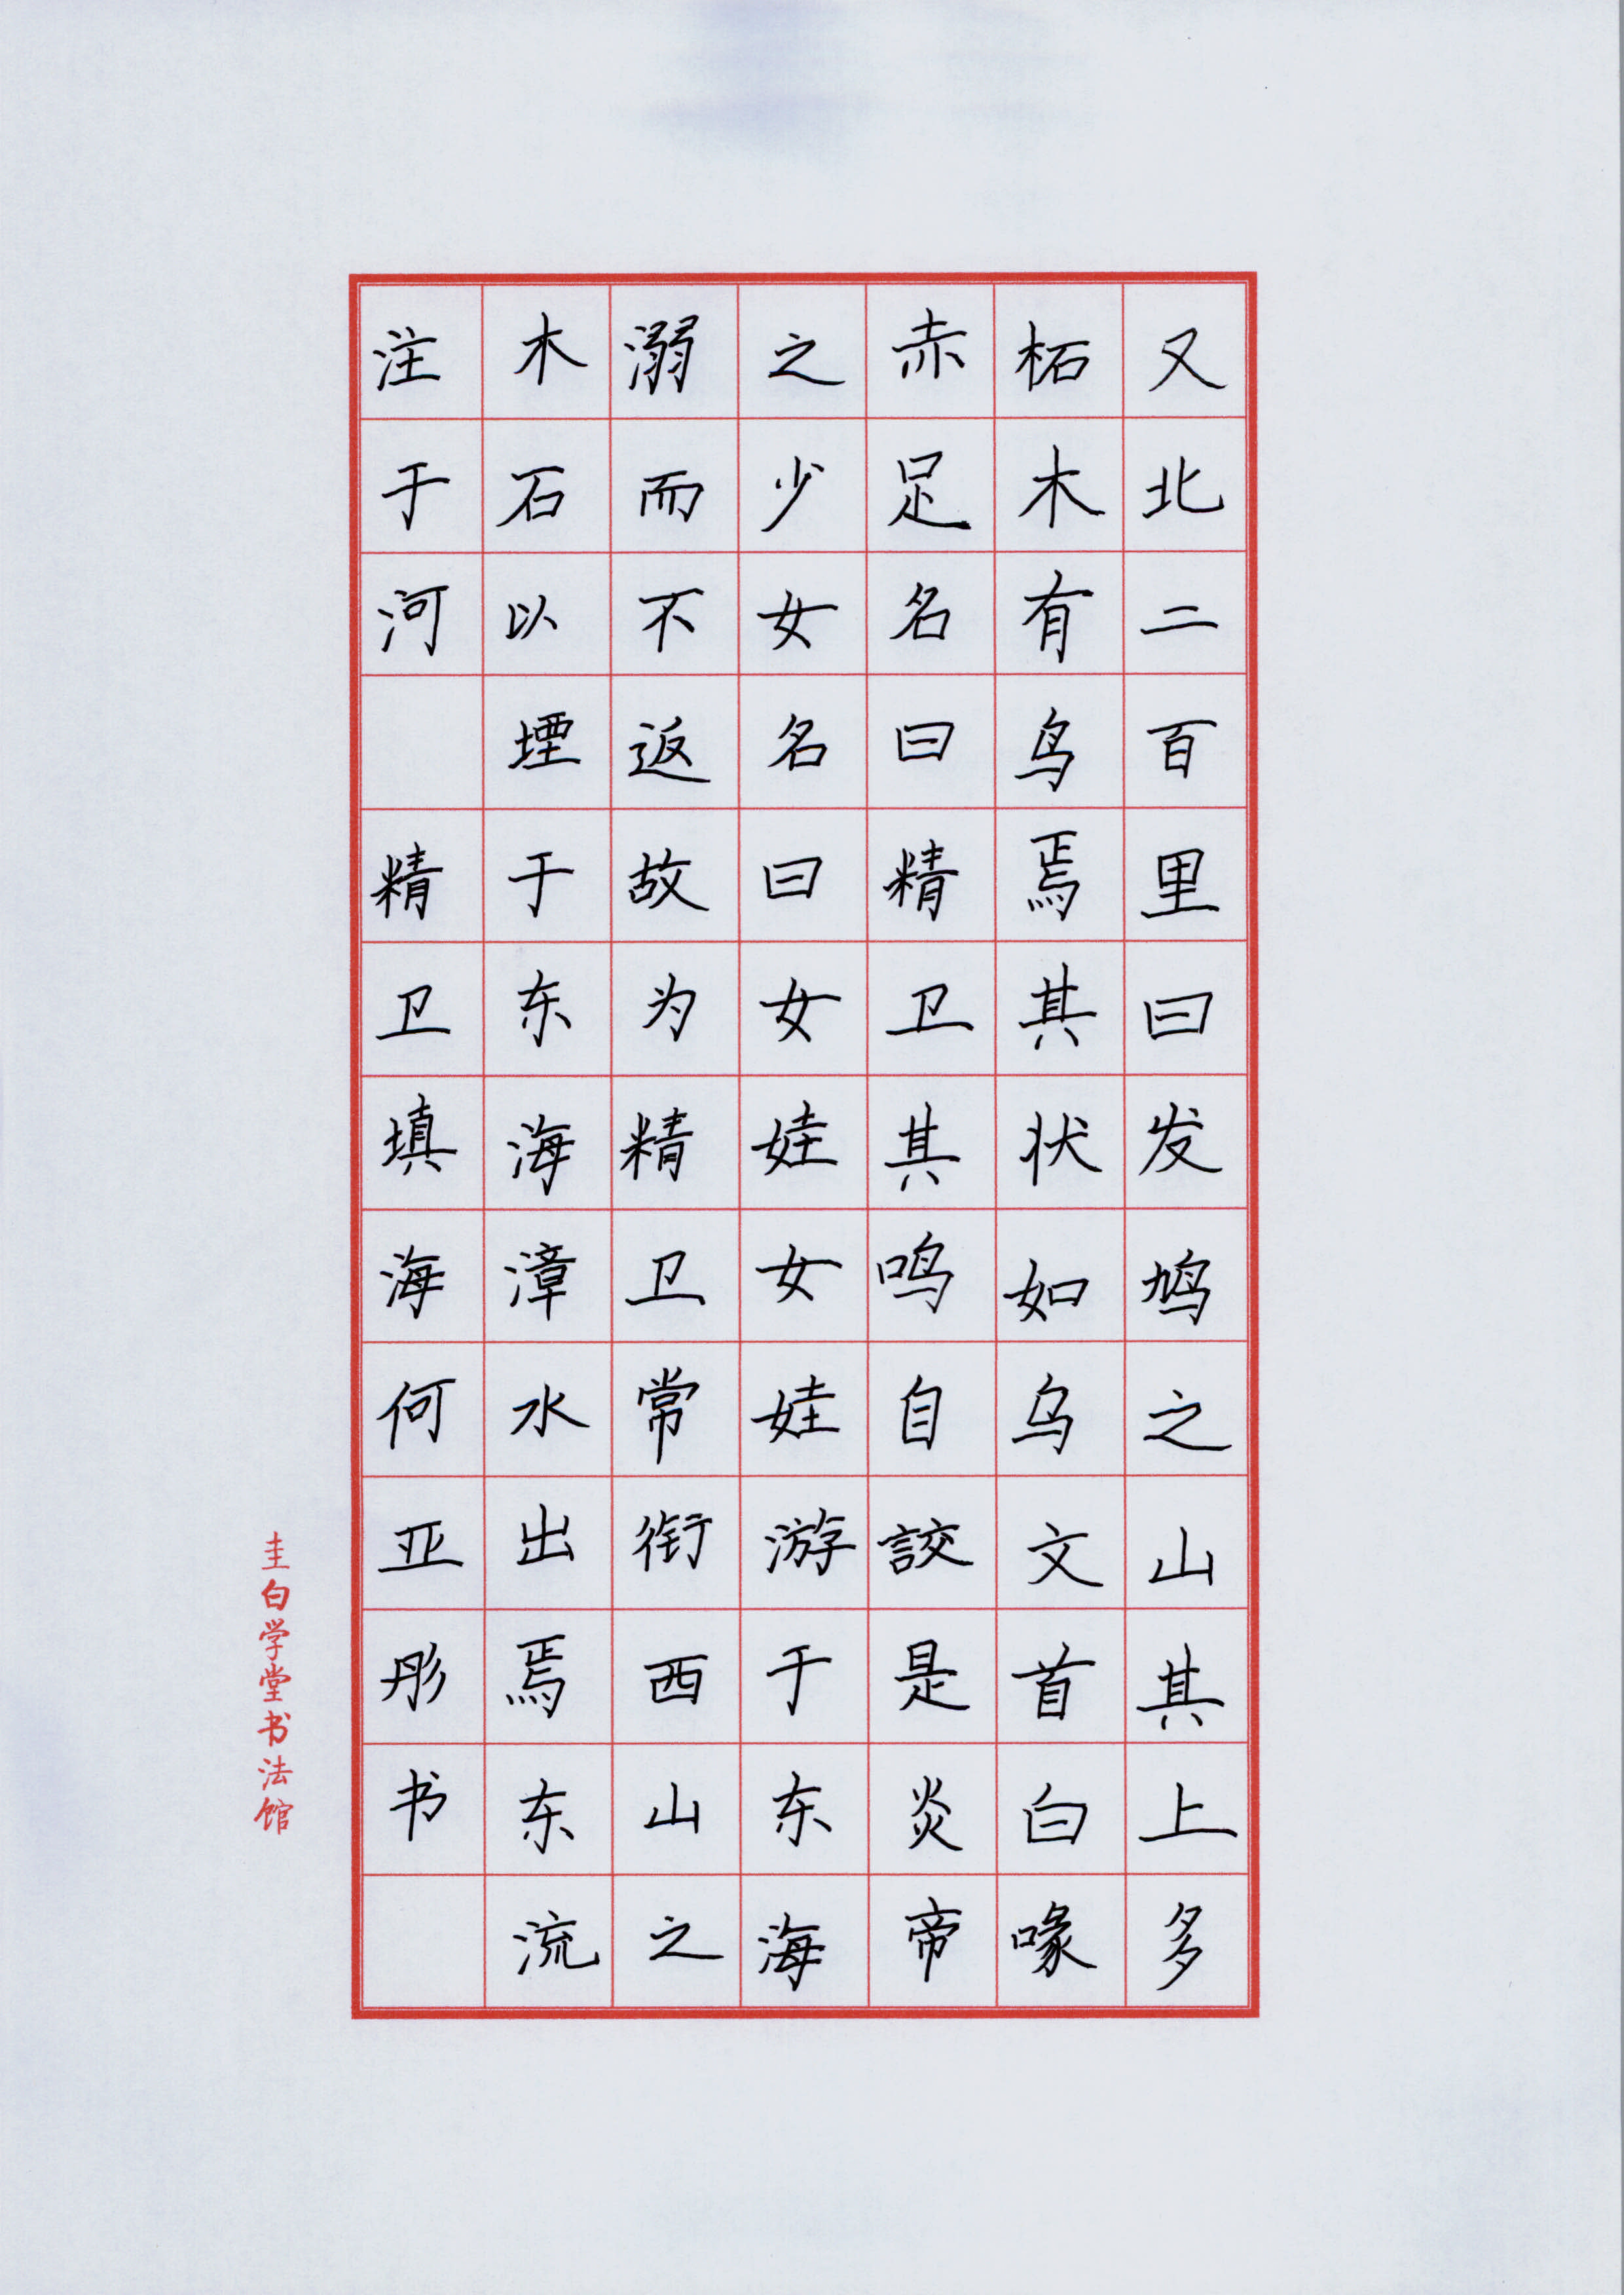 又北二百里曰发鸠之山其上多
柘木有鸟焉其状如乌文首白喙
赤足名曰精卫其鸣自詨是炎帝
之少女名曰女娃女娃游于东海
溺而不返故为精卫常衔西山之
木石以堙于东海漳水出焉东流
注于河 精卫填海何亚彤书
圭白学堂书法馆